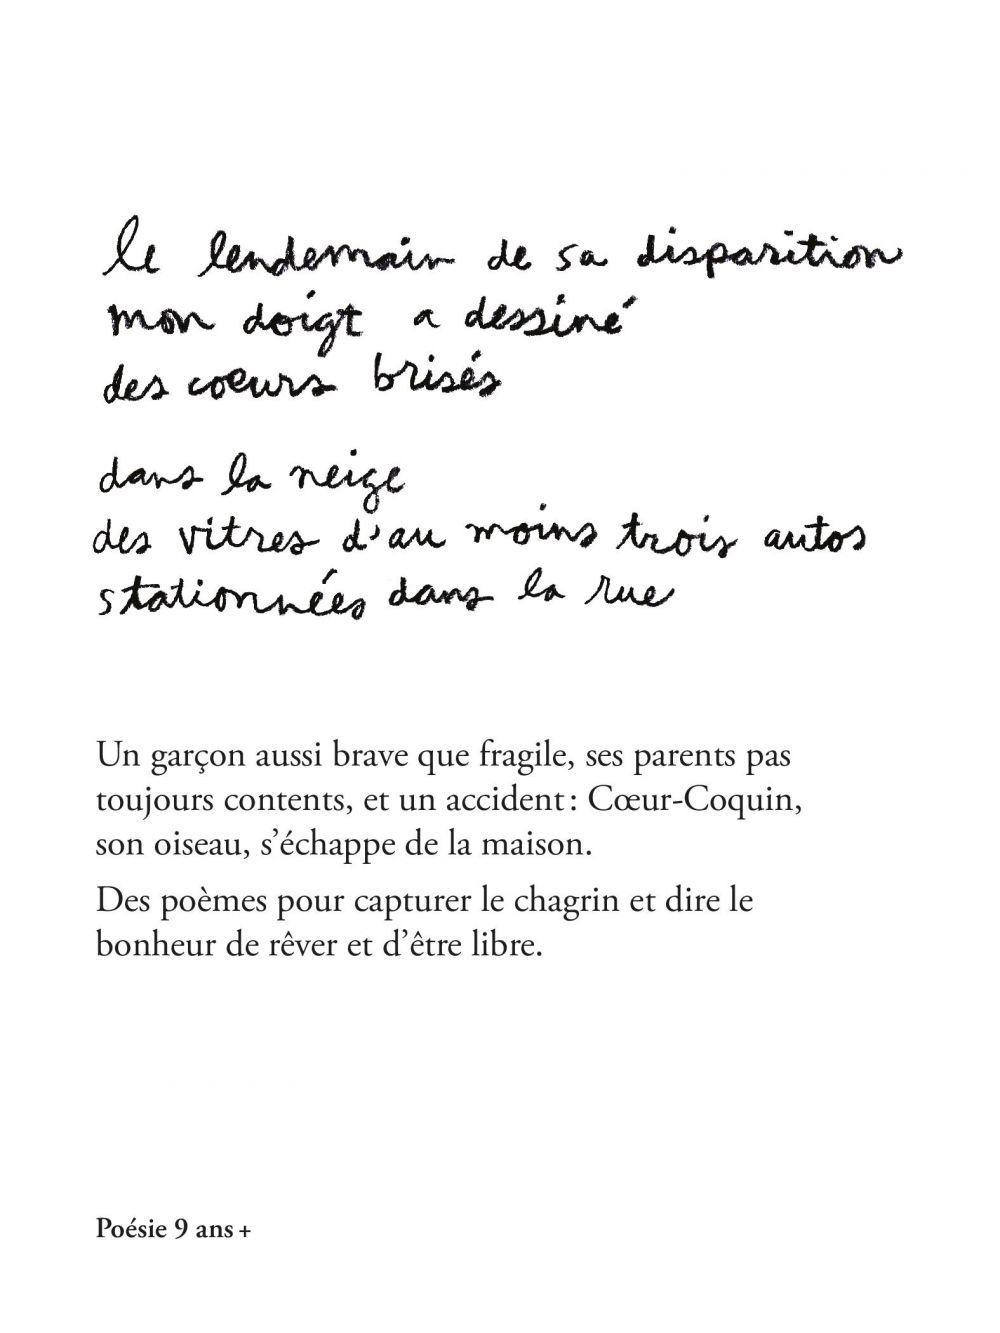 le lendemain de sa disparition
mon doigt a dessiné
des coeurs brisés
dans la neige
des vitres d'au moins trois autos
stationnées dans la rue
Un garçon aussi brave que fragile, ses parents pas
toujours contents, et un accident : Cœur-Coquin,
son oiseau, s'échappe de la maison.
Des poèmes pour capturer le chagrin et dire le
bonheur de rêver et d'être libre.
Poésie 9 ans +